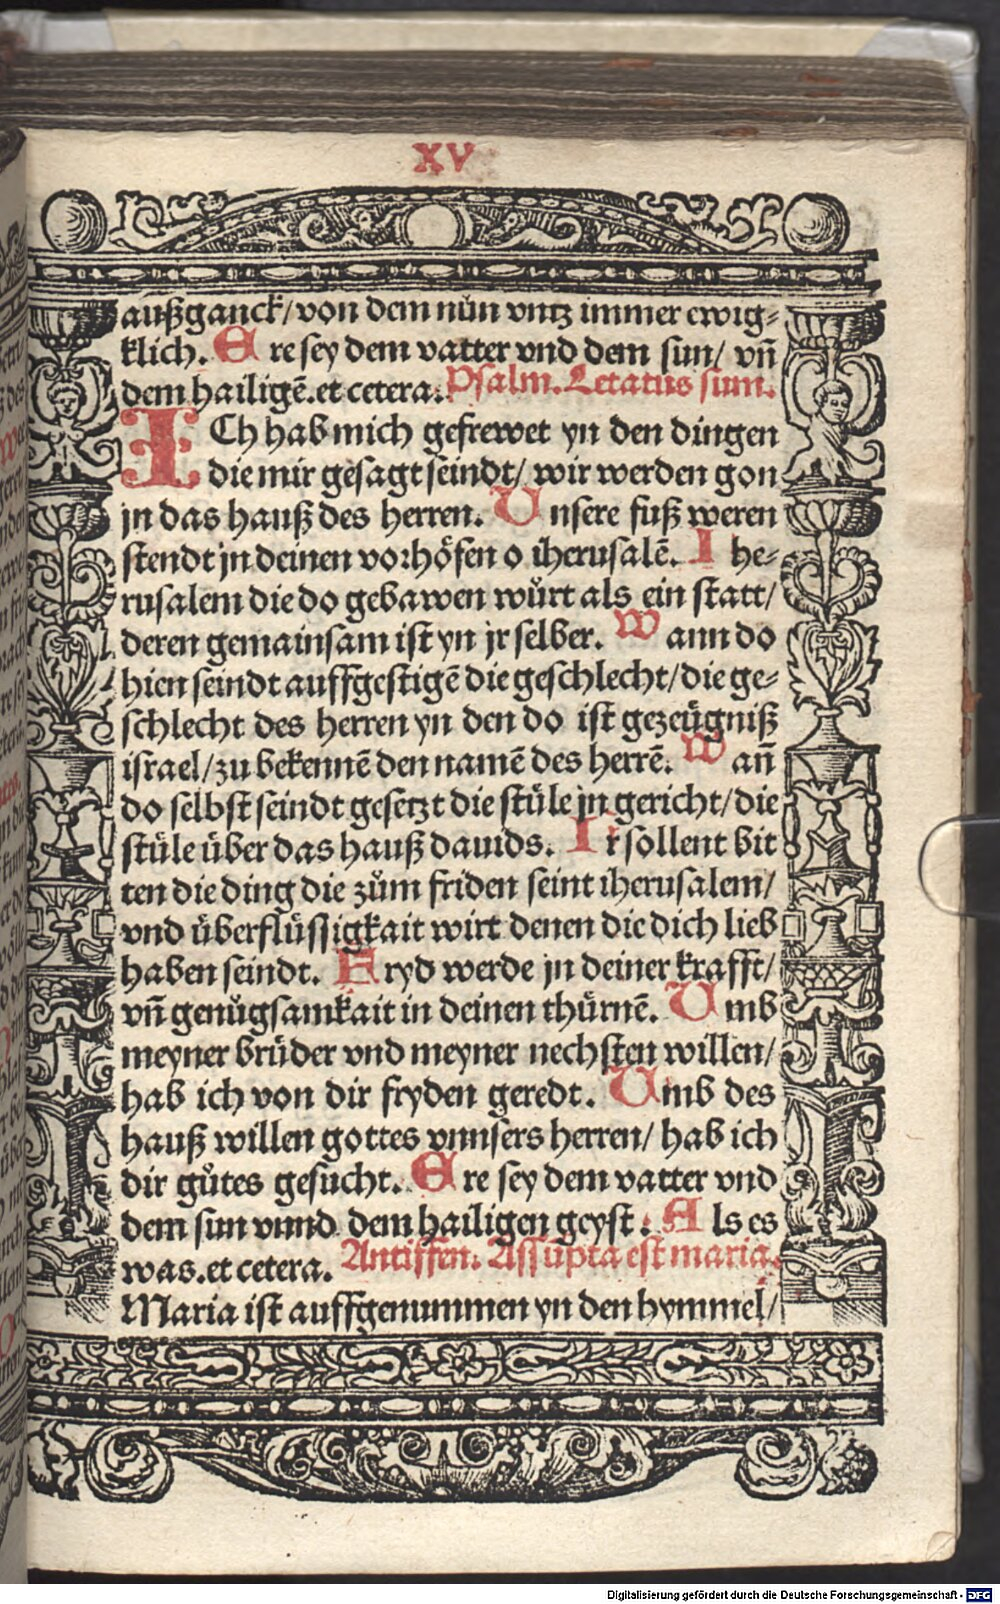 XV
außganck/von dem nůn vntz immer ewig⸗
klich. Ere sey dem vatter vnd dem sun/ vn̄
dem hailigē.et cetera. Psalm. Letatus sum.
ICh hab mich gefrewet yn den dingen
die mir gesagt seindt/ wir werden gon
jn das hauß des herren. Unsere fuß weren
stendt jn deinen vorhöfen o iherusalē. Ihe⸗
rusalem die do gebawen wůrt als ein statt/
deren gemainsam ist yn jr selber. Wann do
hien seindt auffgestigē die geschlecht/die ge⸗
schlecht des herren yn den do ist gezeügniß
israel/zu bekennē den namē des herrē. Wan̄
do selbst seindt gesetzt die stüle jn gericht/die
stüle über das hauß dauids. Ir sollent bit
ten die ding die zům friden seint iherusalem/
vnd überflüssigkait wirt denen die dich lieb
haben seindt. Fryd werde jn deiner krafft/
vn̄ genůgsamkait in deinen thürnē. Umb
meyner brüder vnd meyner nechsten willen/
hab ich von dir fryden geredt. Umb des
hauß willen gottes vnnsers herren/ hab ich
dir gůtes gesucht. Ere sey dem vatter vnd
dem sun vnnd dem hailigen geyst. Als es
was.et cetera. Antiffen. Assūpta est maria.
Maria ist auffgenummen yn den hymmel/
Digitalisierung gefördert durch die Deutsche Forschungsgemeinschaft - DFG